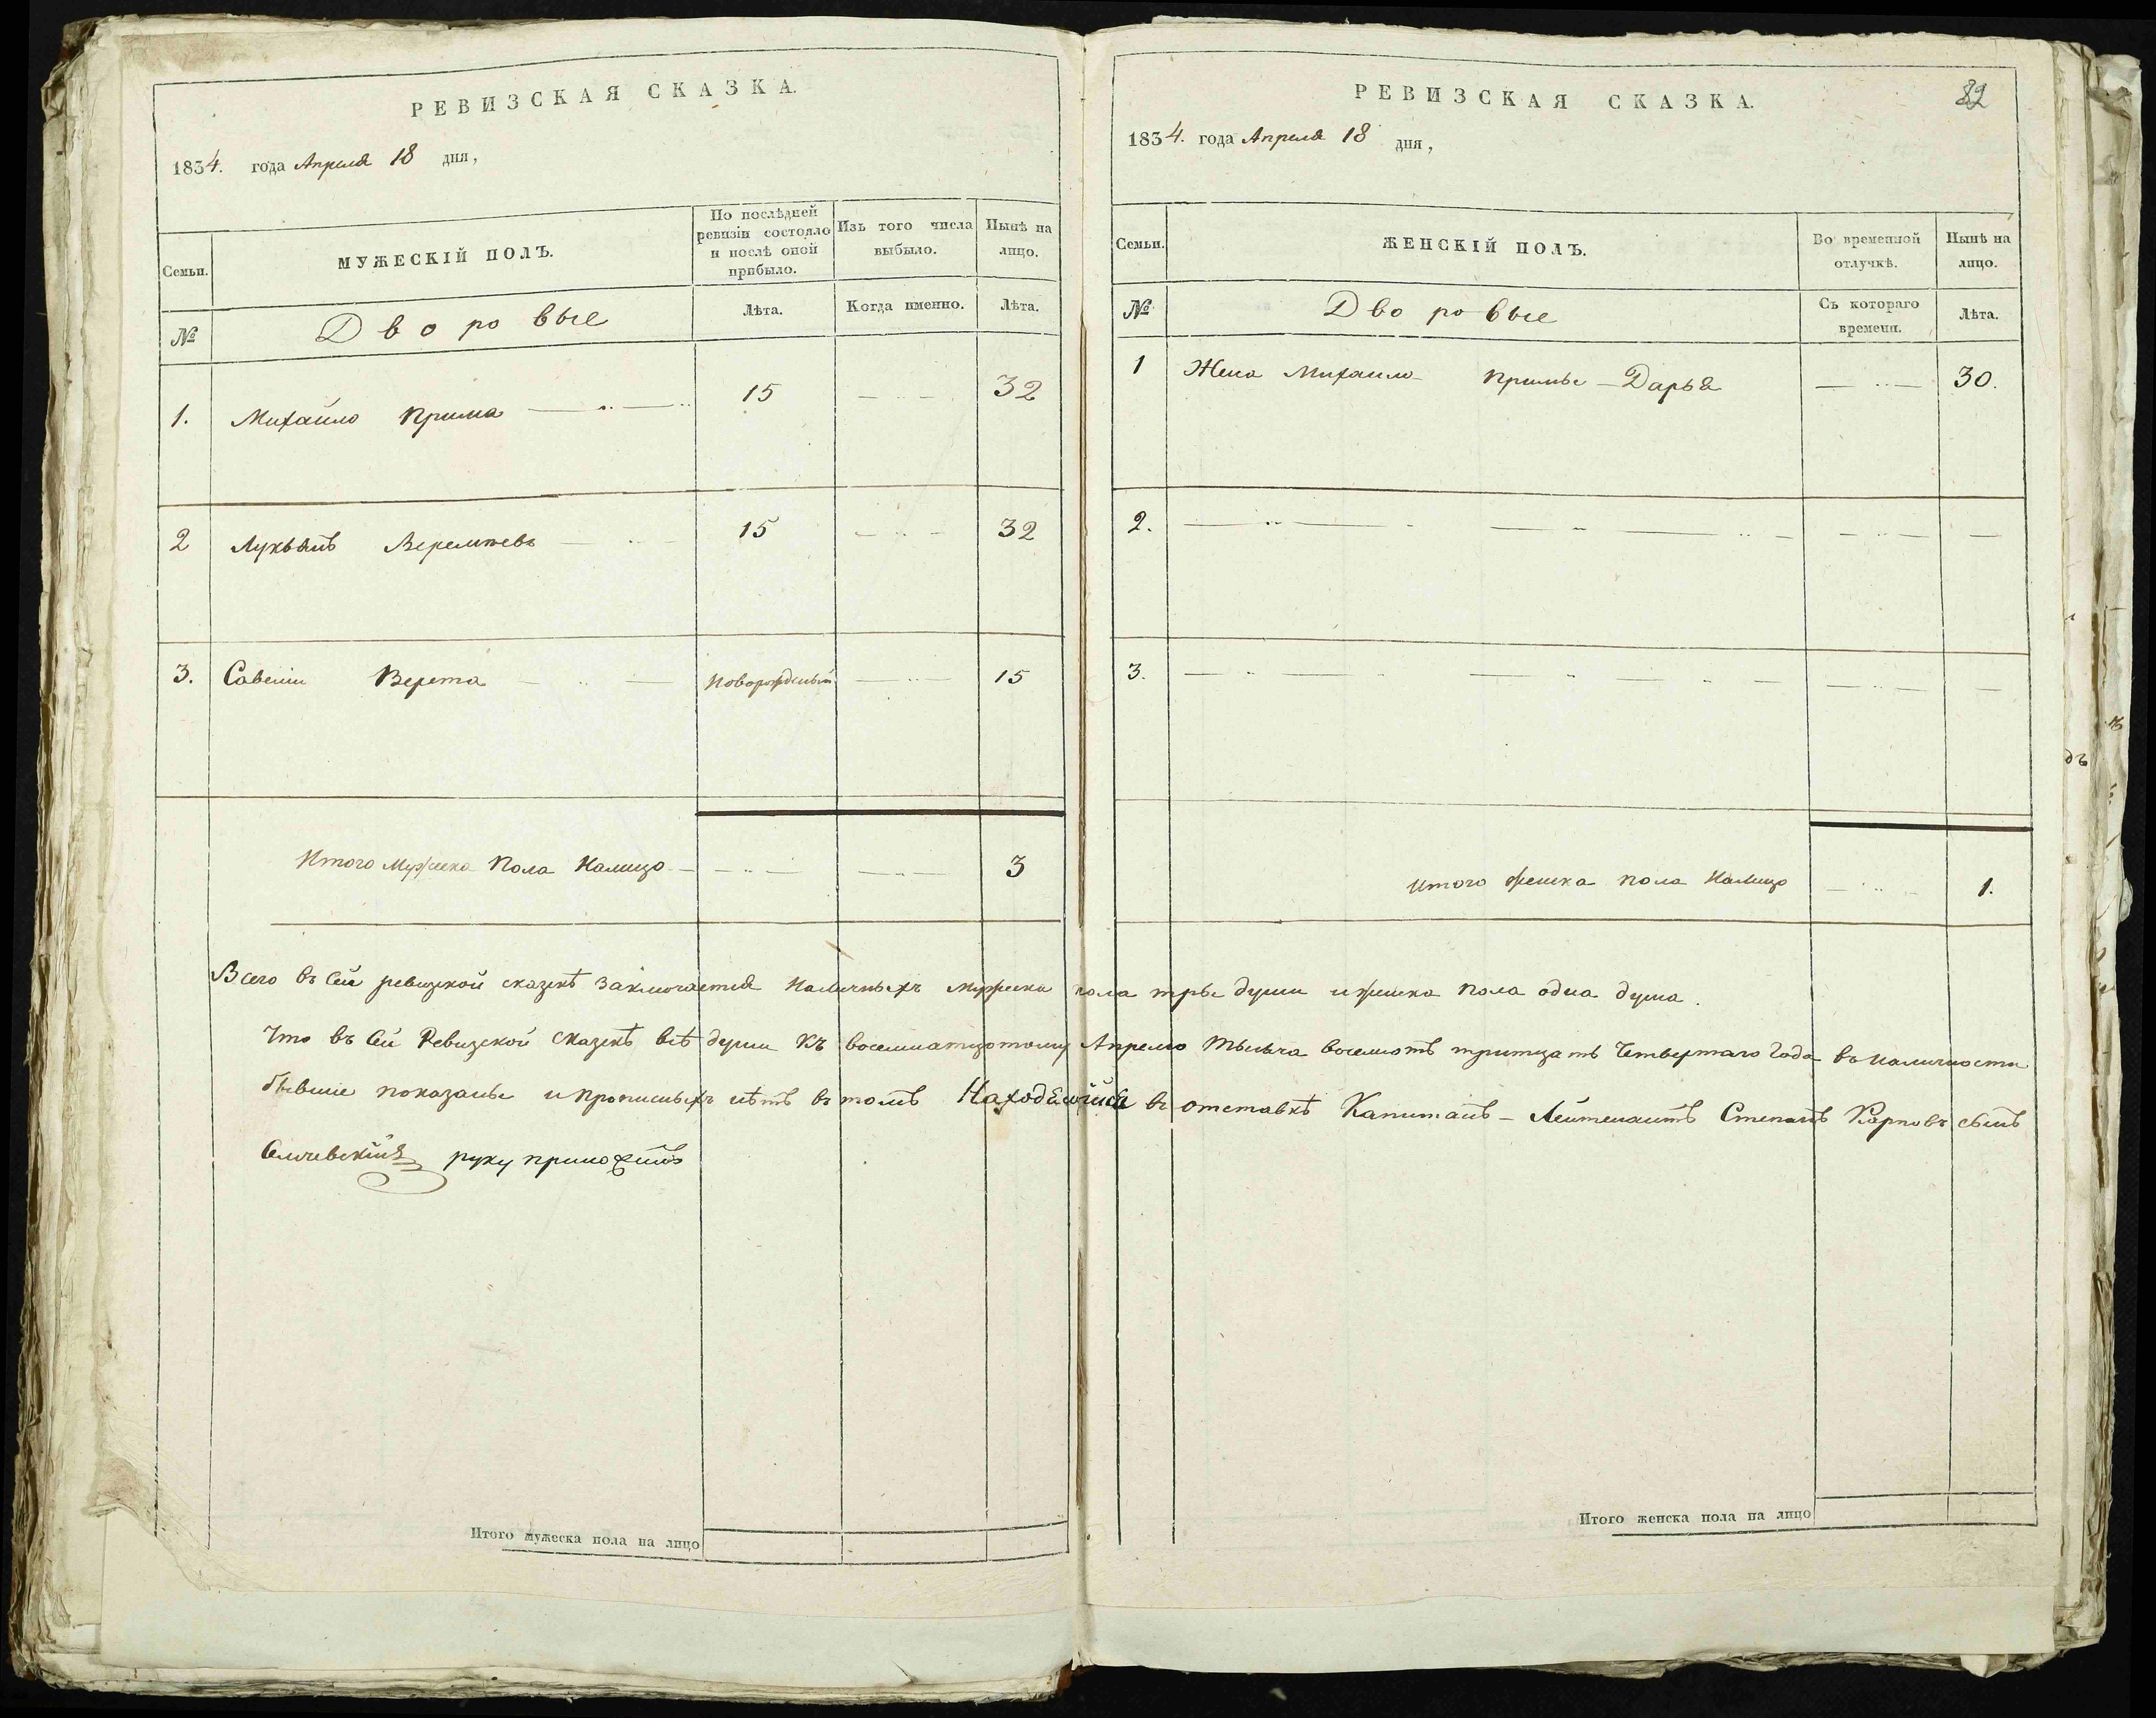 РЕВИЗСКАЯ СКАЗКА.
1834. года Апреля 18 дня,
Семьи. МУЖЕСКІЙ ПОЛЪ. По послѣдней ревизіи состояло и послѣ оной прибыло. Изъ того числа выбыло. Нынѣ на лицо.
№ Дворовые Лѣта. Когда именно. Лѣта.
1. Михайло Прима 15 32
2 Лукьянъ Веремѣевъ 15 32
3. Савелии Верета Новорожденый 15
Итого Мужеска Пола Налицо 3
РЕВИЗСКАЯ СКАЗКА. 82
1834. года Апреля 18 дня,
Семьи. ЖЕНСКІЙ ПОЛЪ. Во временной отлучкѣ. Нынѣ на лицо.
№ Дворовые Съ котораго времени. Лѣта.
1 Жена Михаило Примы Дарья 30.
2.
3.
итого женска пола Налицо 1.
Всего въ сей ревизкой сказкѣ заключается Наличныхъ мужеска пола три души и женска пола одна душа.
Что въ сей Ревизской сказкѣ всѣ души къ восемнатцотому Апрелю тысяча восемсотъ тритцать Четвертаго года въ наличности
бывшие показаны и прописныхъ нѣтъ въ томъ Находящійся въ отставкѣ Капитанъ-Лейтенантъ Степанъ Карповъ сынъ
руку приложилъ
Итого мужеска пола на лицо
Итого женска пола на лицо